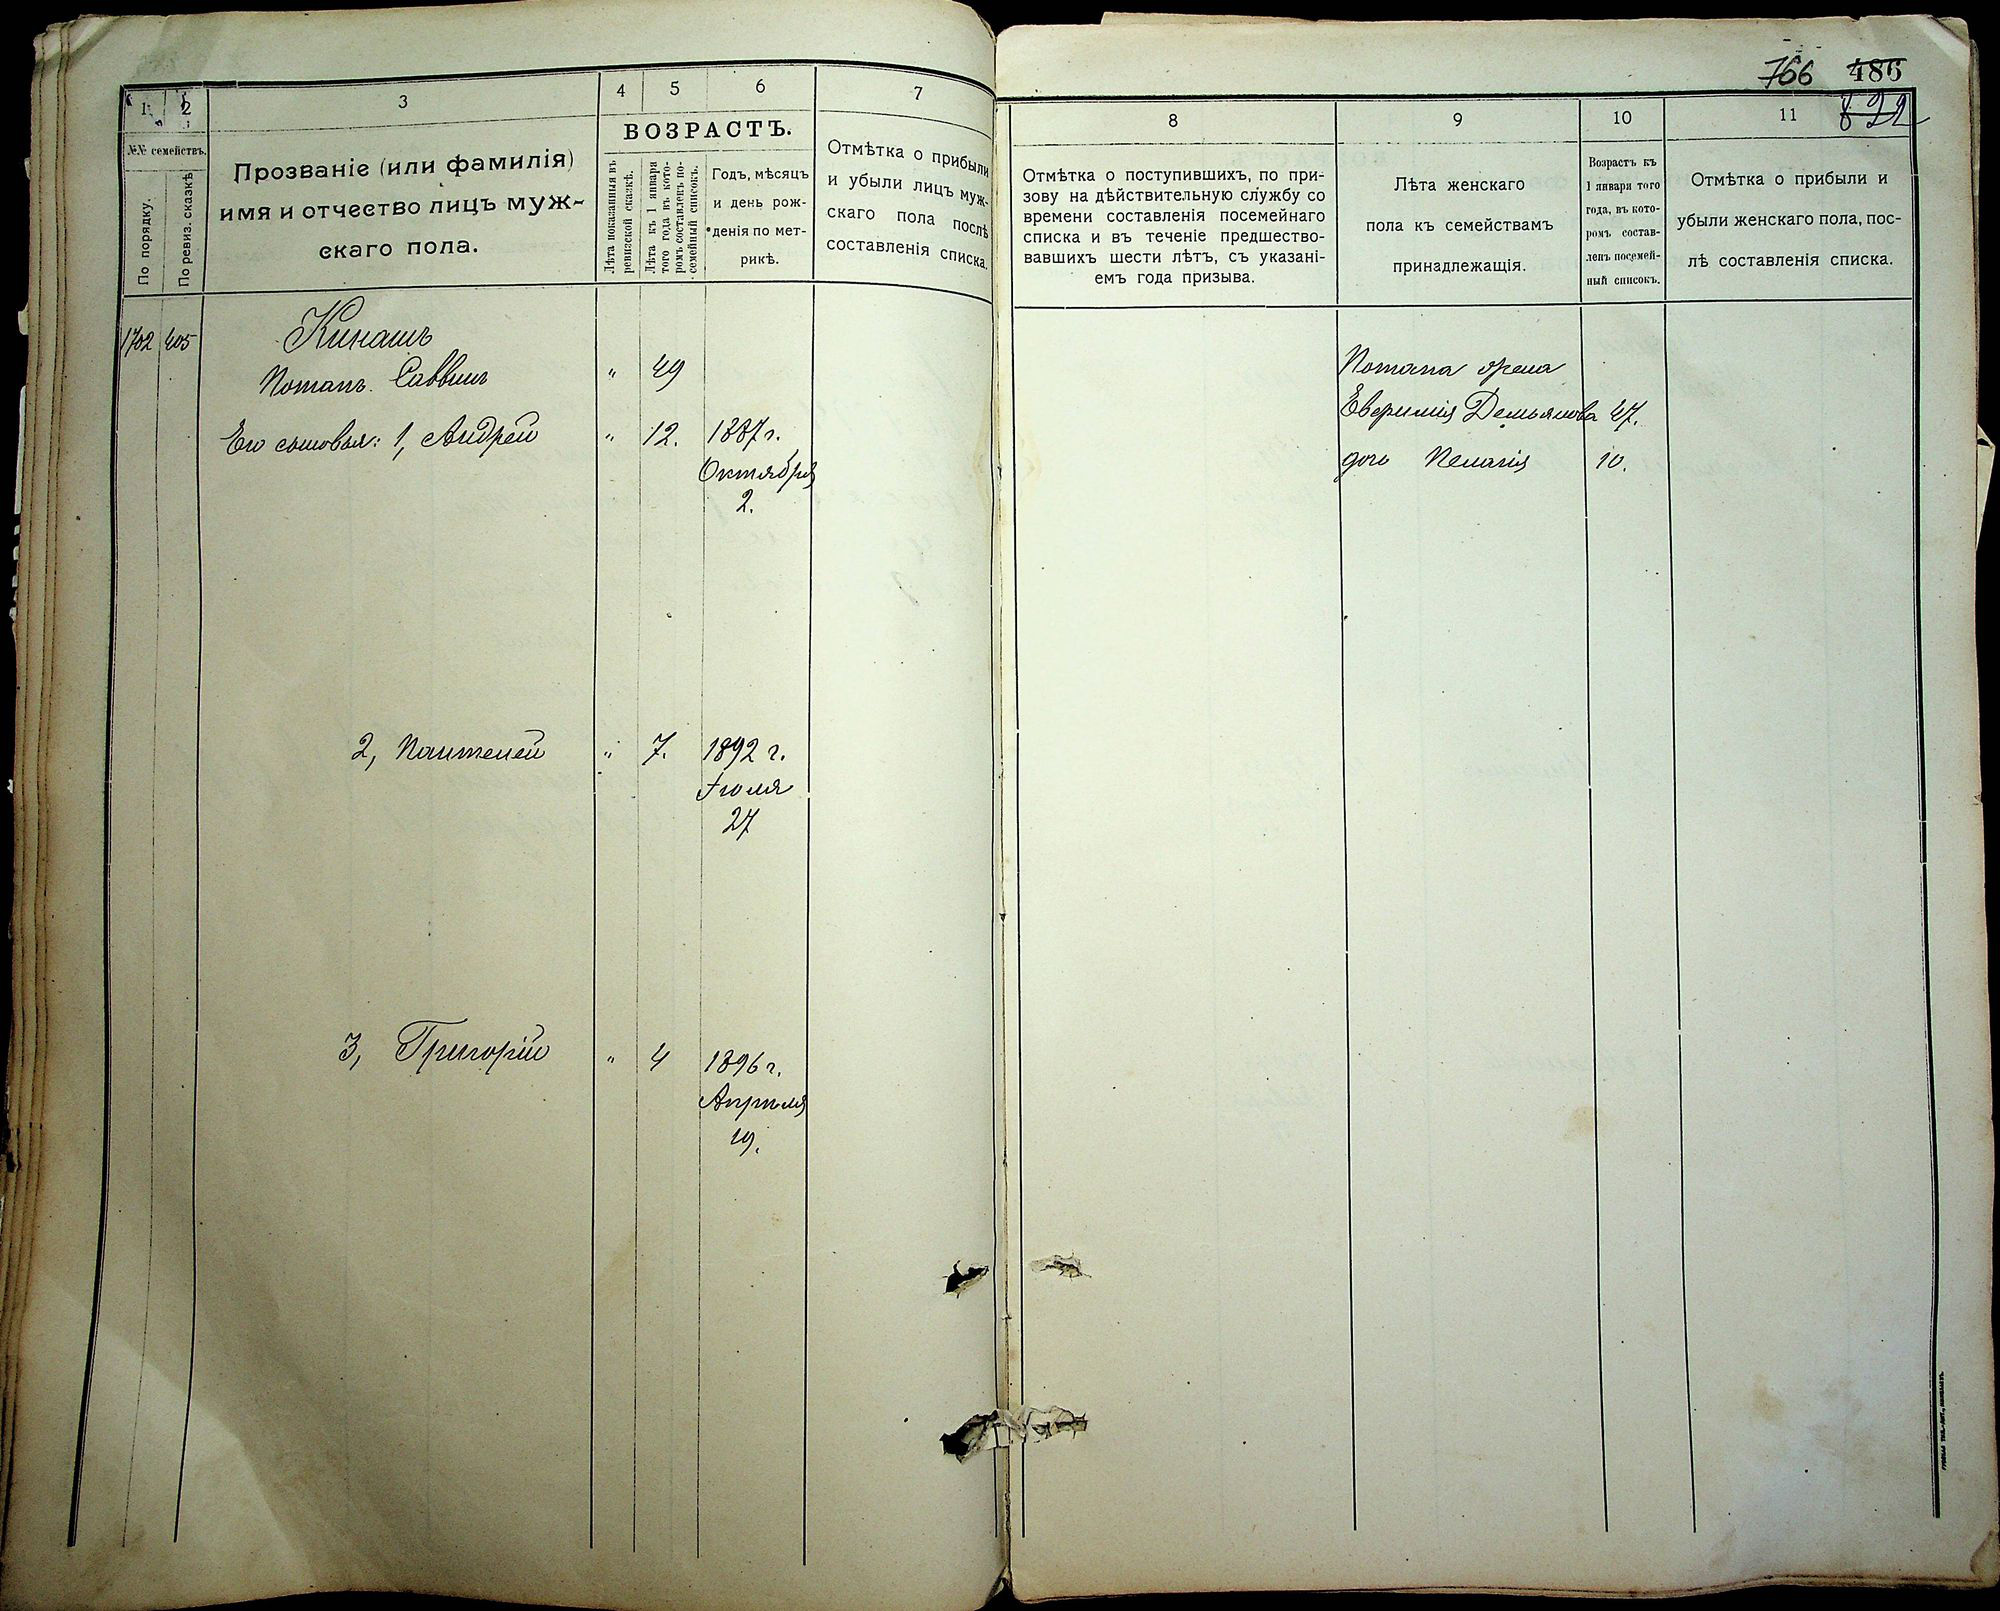 766 486
822
1 2 3 4 5 6 7
№№ семействъ.
По порядку.
По ревиз. сказкѣ
Прозваніе (или фамилія)
имя и отчество лицъ муж-
скаго пола.
ВОЗРАСТЪ.
Лѣта показанныя въ
ревизской сказкѣ.
Лѣта къ 1 января
того года въ кото-
ромъ составленъ по-
семейный списокъ.
Годъ, мѣсяцъ
и день рож-
денія по мет-
рикѣ.
Отмѣтка о прибыли
и убыли лицъ муж-
скаго пола послѣ
составленія списка.
1702 405 Кинашъ
Потапъ Саввинъ " 49
Его сыновья: 1, Андрей " 12. 1887 г.
Октября
2.
2, Пантелей " 7. 1892 г.
Іюля
27
3, Григорій " 4 1896 г.
Апрѣля
19.
8 9 10 11
Отмѣтка о поступившихъ, по при-
зову на дѣйствительную службу со
времени составленія посемейнаго
списка и въ теченіе предшество-
вавшихъ шести лѣтъ, съ указані-
емъ года призыва.
Лѣта женскаго
пола къ семействамъ
принадлежащія.
Возрастъ къ
1 января того
года, въ кото-
ромъ состав-
ленъ посемей-
ный списокъ.
Отмѣтка о прибыли и
убыли женскаго пола, пос-
лѣ составленія списка.
Потапа жена
Евфимія Демьянова 47.
дочь Пелагія 10.